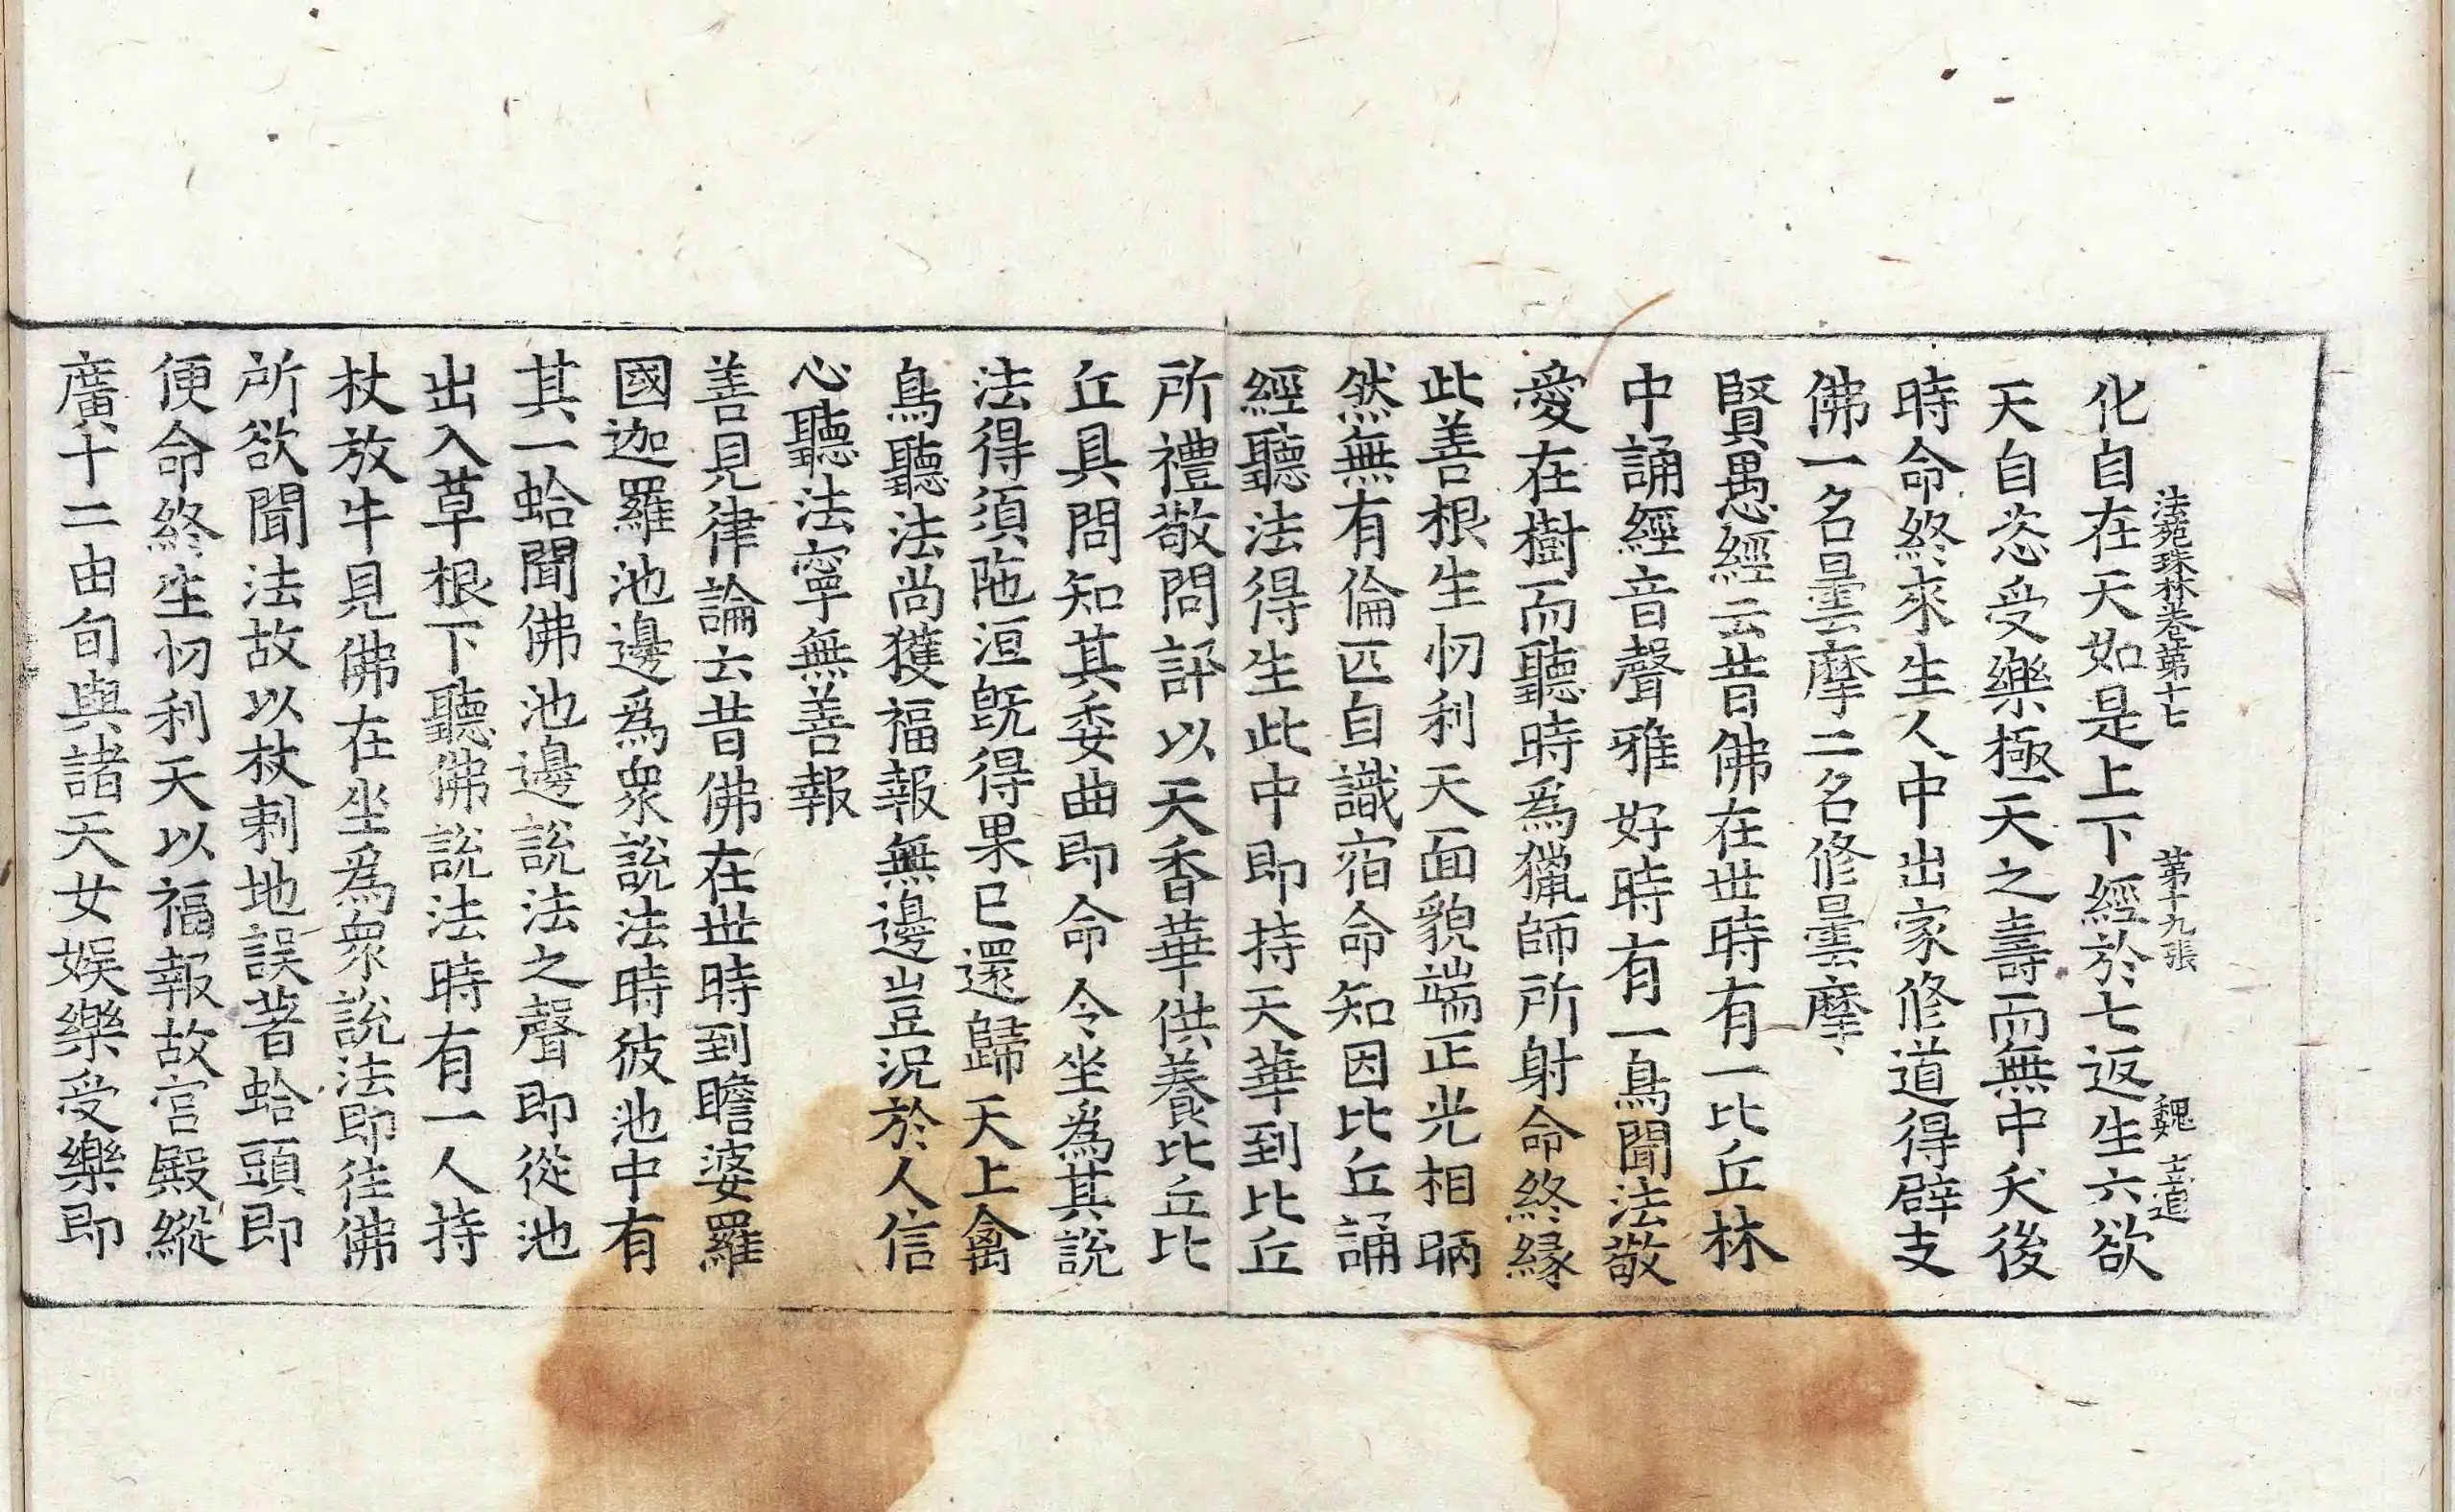 法苑珠林卷第十七　第十九張　魏　士道
化自在天如是上下經於七返生六欲
天自恣受樂極天之壽而無中夭後
時命終來生人中出家修道得辟支
佛一名曇摩二名修曇摩
賢愚經云昔佛在世時有一比丘林
中誦經音聲雅好時有一鳥聞法敬
愛在樹而聽時為獵師所射命終緣
此善根生忉利天面貌端正光相昞
然無有倫匹自識宿命知因比丘誦
經聽法得生此中即持天華到比丘
所禮敬問訊以天香華供養比丘比
丘具問知其委曲即命令坐為其說
法得須陁洹既得果已還歸天上禽
鳥聽法尚獲福報無邊豈況於人信
心聽法寧無善報
善見律論云昔佛在世時到瞻婆羅
國迦羅池邊為眾說法時彼池中有
其一蛤聞佛池邊說法之聲即從池
出入草根下聽佛說法時有一人持
杖放牛見佛在坐為眾說法即往佛
所欲聞法故以杖刺地誤著蛤頭即
便命終生忉利天以福報故宮殿縱
廣十二由旬與諸天女娛樂受樂即